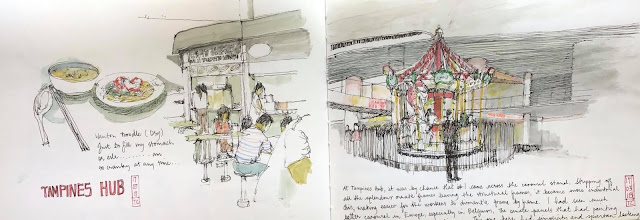 Wanton Noodle (Dry)
Just to fill my stomach
or else ............ am
so cranky at any time...
TAMPINES HUB
At Tampines Hub, it was by chance that I came across the carousel stand. Stripping of
all the splendour ornate frames leaving the structural frames, it became more industrial
this, making easier for the workers to dismantle, frame by frame. I had seen much
older carousel in Europe, especially in Belgium, the ornate panels that had painting